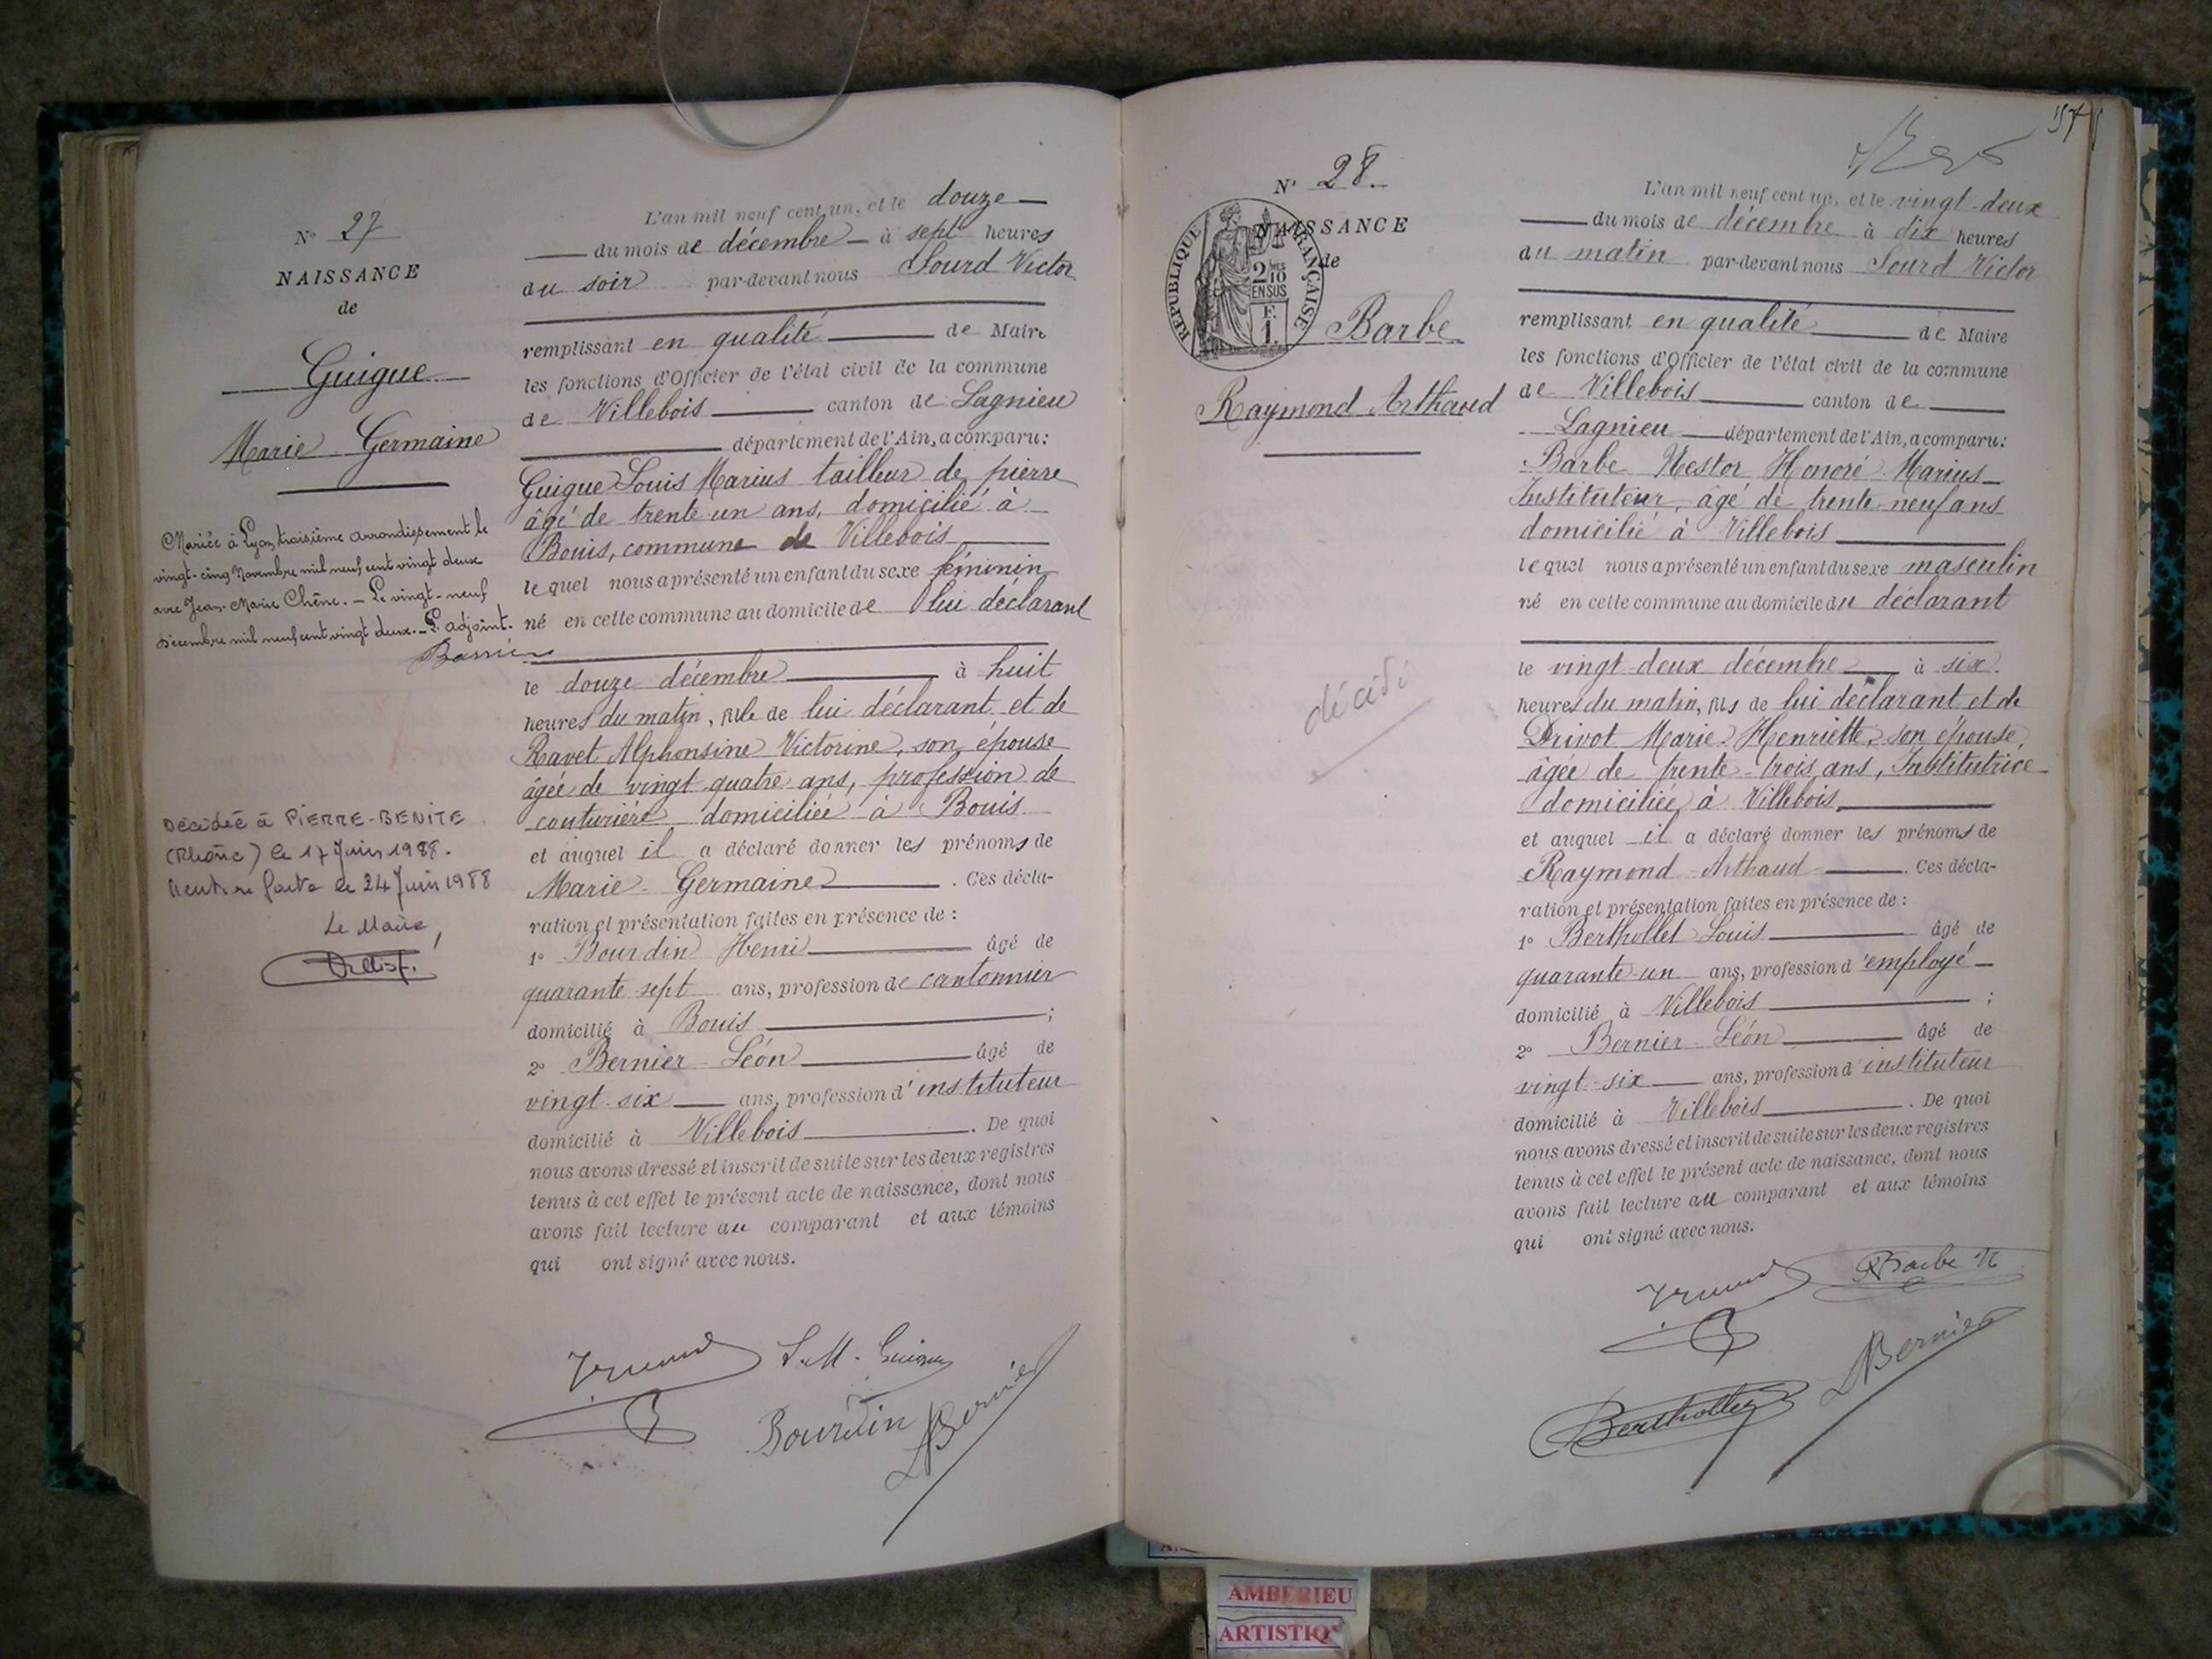 N° 27
NAISSANCE
de
Guigue
Marie Germaine
Mariée à Lyon, troisième arrondissement le
vingt-cinq Novembre mil neuf cent vingt deux
avec Jean-Marie Chêne. _ Le vingt-neuf
Décembre mil neuf cent vingt deux. _ L'adjoint.
Décédée à PIERRE-BENITE
(Rhône) le 17 Juin 1988.
faite le 24 Juin 1988
Le Maire,
L'an mil neuf cent un, et le douze
du mois de décembre à sept heures
du soir par-devant nous Sourd Victor
remplissant en qualité de Maire
les fonctions d'Officier de l'état civil de la commune
de Villebois canton de Lagnieu
département de l'Ain, a comparu:
Guigue Louis Marius tailleur de pierre
âgé de trente un ans, domicilié à
Bouis, commune de Villebois
lequel nous a présenté un enfant du sexe féminin
né en cette commune au domicile de lui déclarant
le douze décembre à huit
heures du matin, fille de lui déclarant et de
Ravet Alphonsine Victorine, son épouse
âgée de vingt quatre ans, profession de
couturière domiciliée à Bouis
et auquel il a déclaré donner les prénoms de
Marie Germaine. Ces décla-
ration et présentation faites en présence de :
1° Bourdin Henri âgé de
quarante sept ans, profession de cantonnier
domicilié à Bouis ;
2° Bernier Léon âgé de
vingt six ans, profession d'instituteur
domicilié à Villebois. De quoi
nous avons dressé et inscrit de suite sur les deux registres
tenus à cet effet le présent acte de naissance, dont nous
avons fait lecture au comparant et aux témoins
qui ont signé avec nous.
L. M. Guigue
Bourdin
LBernier
157
N° 28.
NAISSANCE
de
REPUBLIQUE FRANÇAISE
2/10
EN SUS
F.
1.
Barbe
Raymond Arthaud
décidé
L'an mil neuf cent un, et le vingt-deux
du mois de décembre à dix heures
du matin par-devant nous Sourd Victor
remplissant en qualité de Maire
les fonctions d'Officier de l'état civil de la commune
de Villebois canton de
Lagnieu département de l'Ain, a comparu:
Barbe Nestor Honoré Marius
Instituteur, âgé de trente-neuf ans
domicilié à Villebois
lequel nous a présenté un enfant du sexe masculin
né en cette commune au domicile du déclarant
le vingt-deux décembre à six
heures du matin, fils de lui déclarant et de
Drivot Marie Henriette, son épouse,
âgée de trente-trois ans, Institutrice
domiciliée à Villebois
et auquel il a déclaré donner les prénoms de
Raymond Arthaud. Ces décla-
ration et présentation faites en présence de :
1° Berthollet Louis âgé de
quarante-un ans, profession d'employé
domicilié à Villebois ;
2° Bernier Léon âgé de
vingt-six ans, profession d'instituteur
domicilié à Villebois. De quoi
nous avons dressé et inscrit de suite sur les deux registres
tenus à cet effet le présent acte de naissance, dont nous
avons fait lecture au comparant et aux témoins
qui ont signé avec nous.
Barbe N
LBernier
Berthollet
AMBERIEU
ARTISTIQ